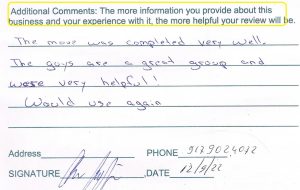 Additional Comments: The more information you provide about this
business and your experience with it, the more helpful your review will be.
The move was completed very well.
The guys are a great group and
were very helpful!
Would use again
Address PHONE 9179024072
SIGNATURE ,DATE 12/9/22